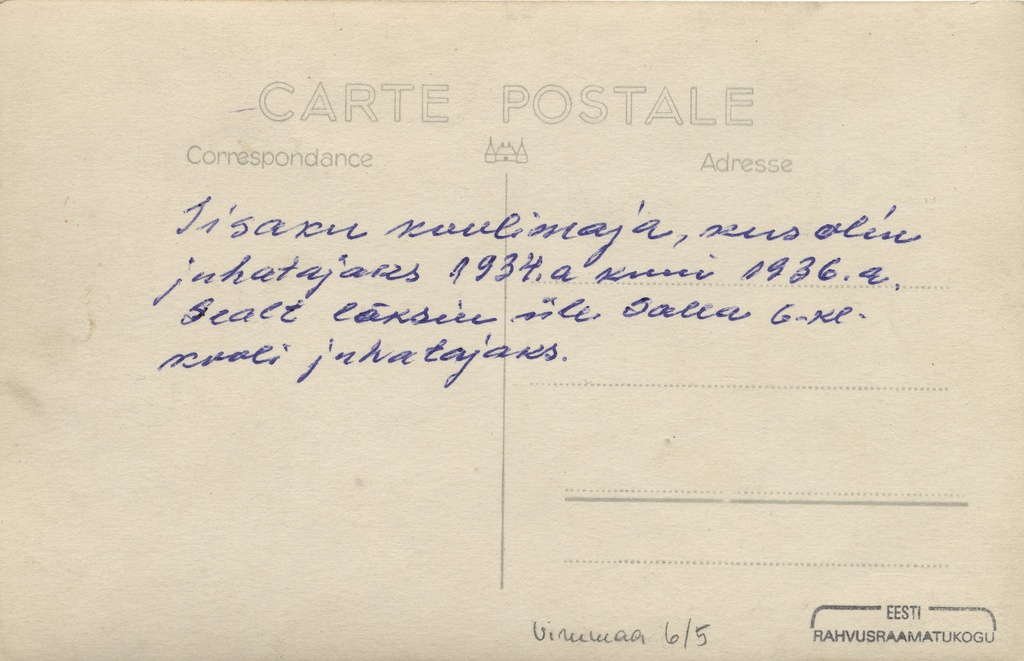 CARTE POSTALE
Correspondance Adresse
Iisaku koolimaja, kus olin
juhatajaks 1934.a kuni 1936.a.
Sealt läksin üle Salla 6-kl.
kooli juhatajaks.
Virumaa 6/5
EESTI
RAHVUSRAAMATUKOGU